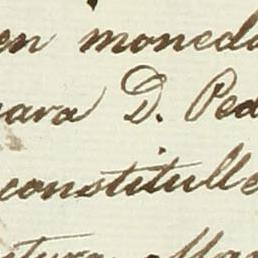 en moneda
para D. Ped
constitulle